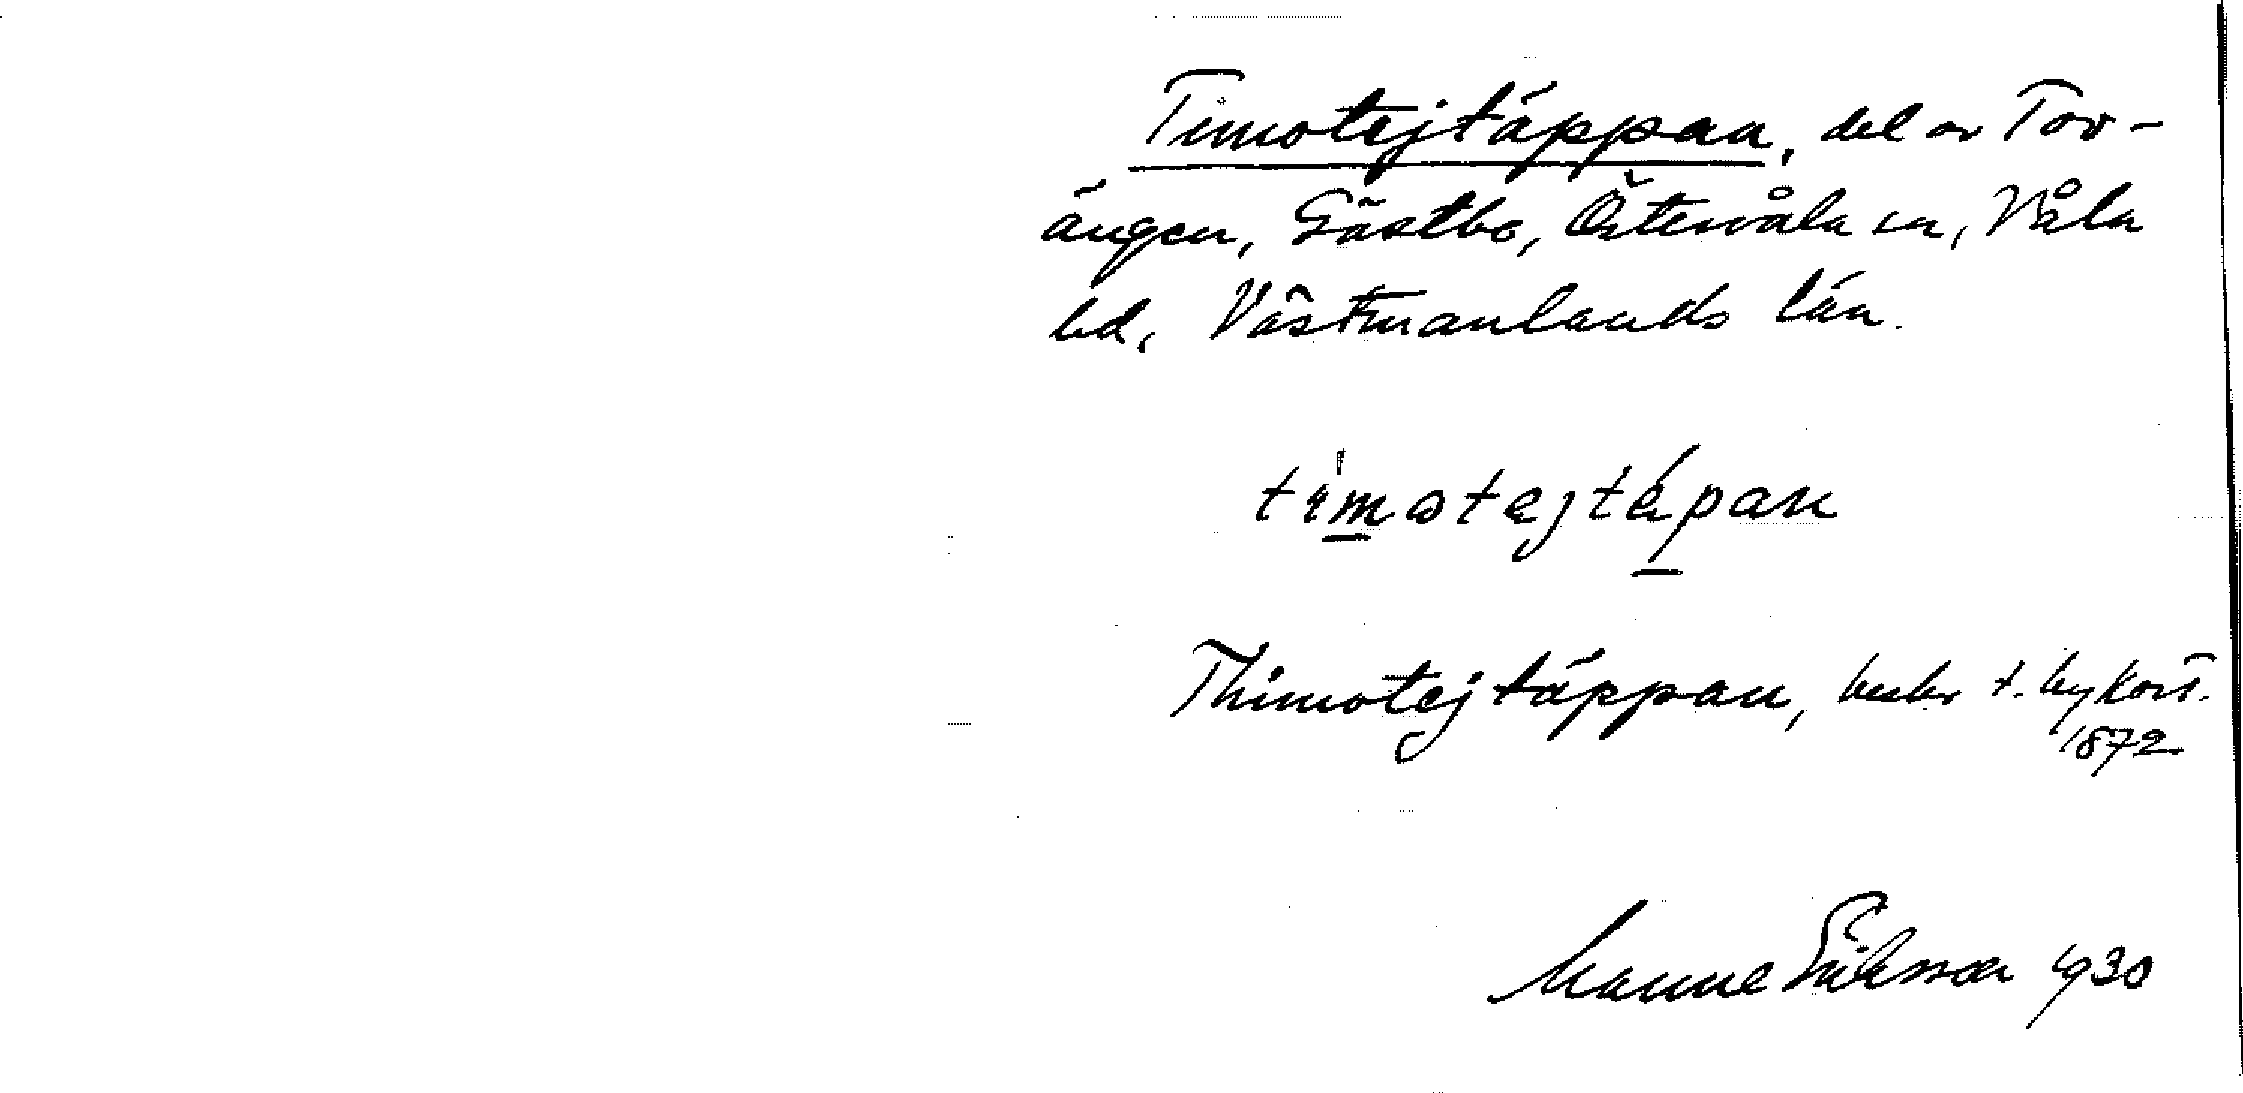 Timotejtäppan, del av Tor-
ängen, Gästbo, Östervåla sn, Våla
hd, Västmanlands län.
timotejtäpan
Thimotejtäppan, beskr t. bykart.
1872
Manne Eriksson 1930